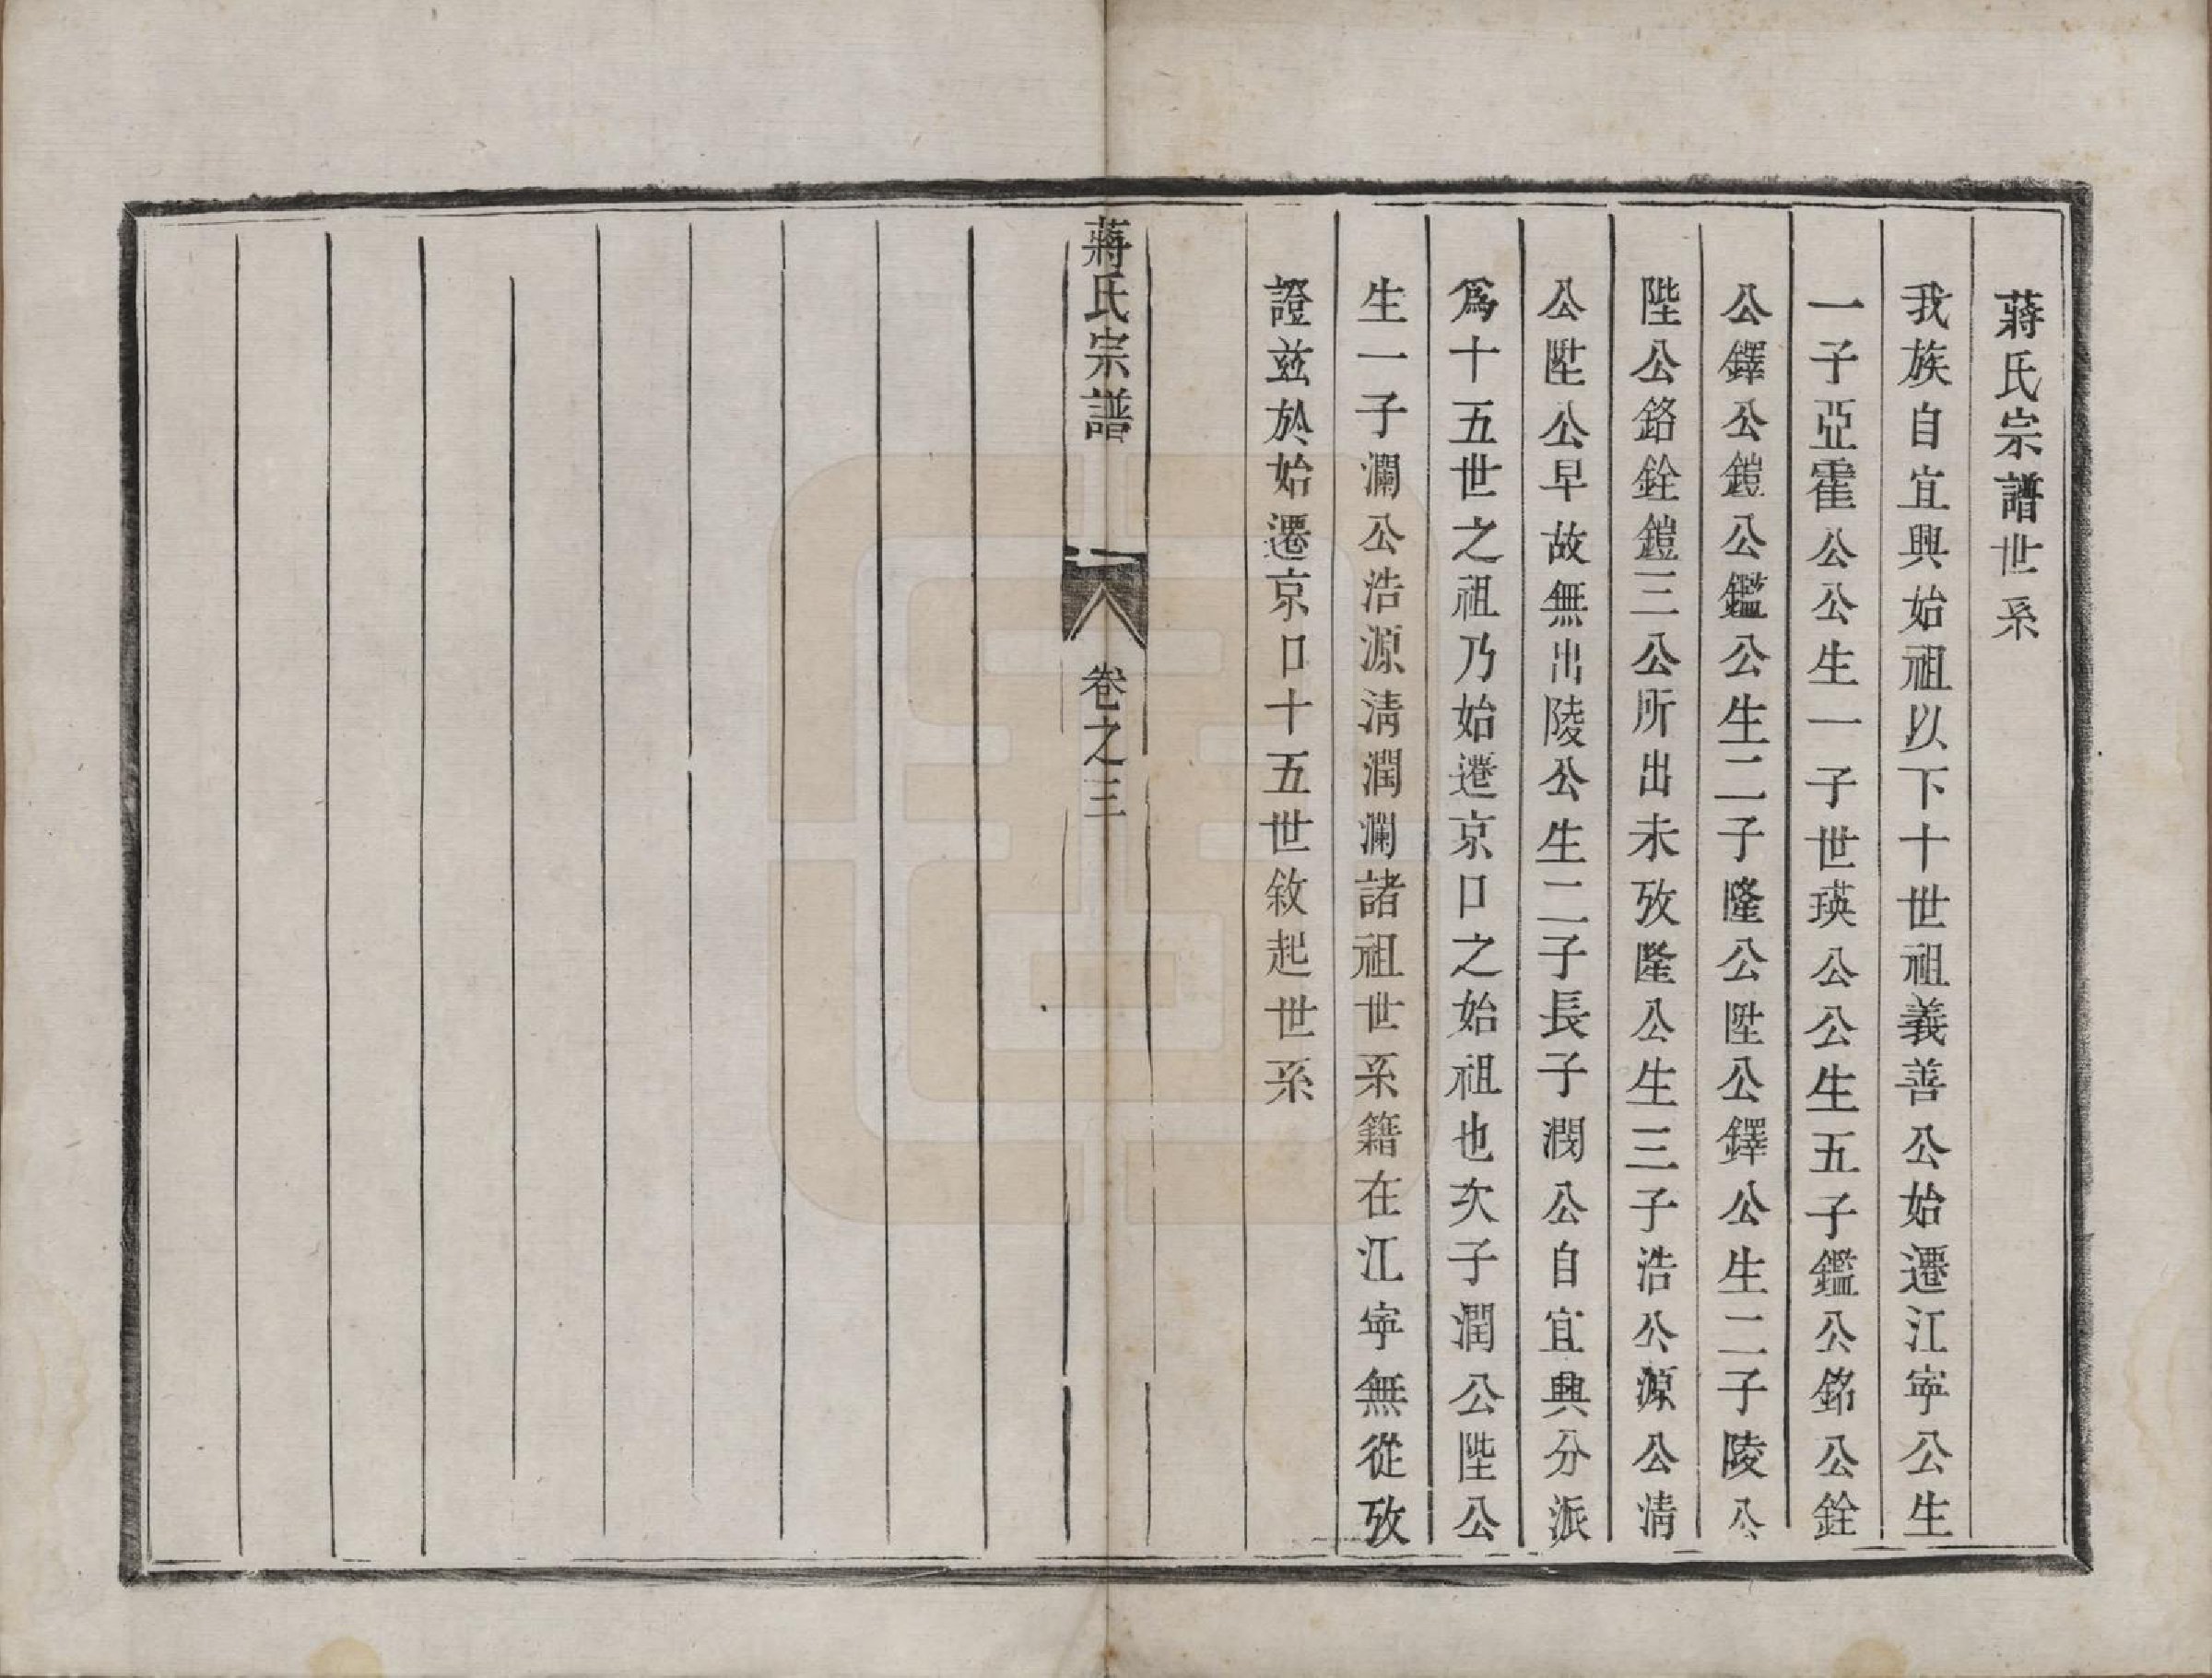 蔣氏宗譜世系
我族自宜興始祖以下十世祖義善公始遷江寧公生
一子亞霍公公生一子世瑛公公生五子鑑公銘公銓
公鐸公鎧公鑑公生二子隆公陞公鐸公生二子陵公
陛公銘銓鎧三公所出未攷隆公生三子浩公源公清
公陞公早故無出陵公生二子長子潤公自宜興分派
爲十五世之祖乃始遷京口之始祖也次子潤公陛公
生一子瀾公浩源清潤瀾諸祖世系籍在江寧無從攷
證兹於始遷京口十五世敘起世系
蔣氏宗譜
卷之三